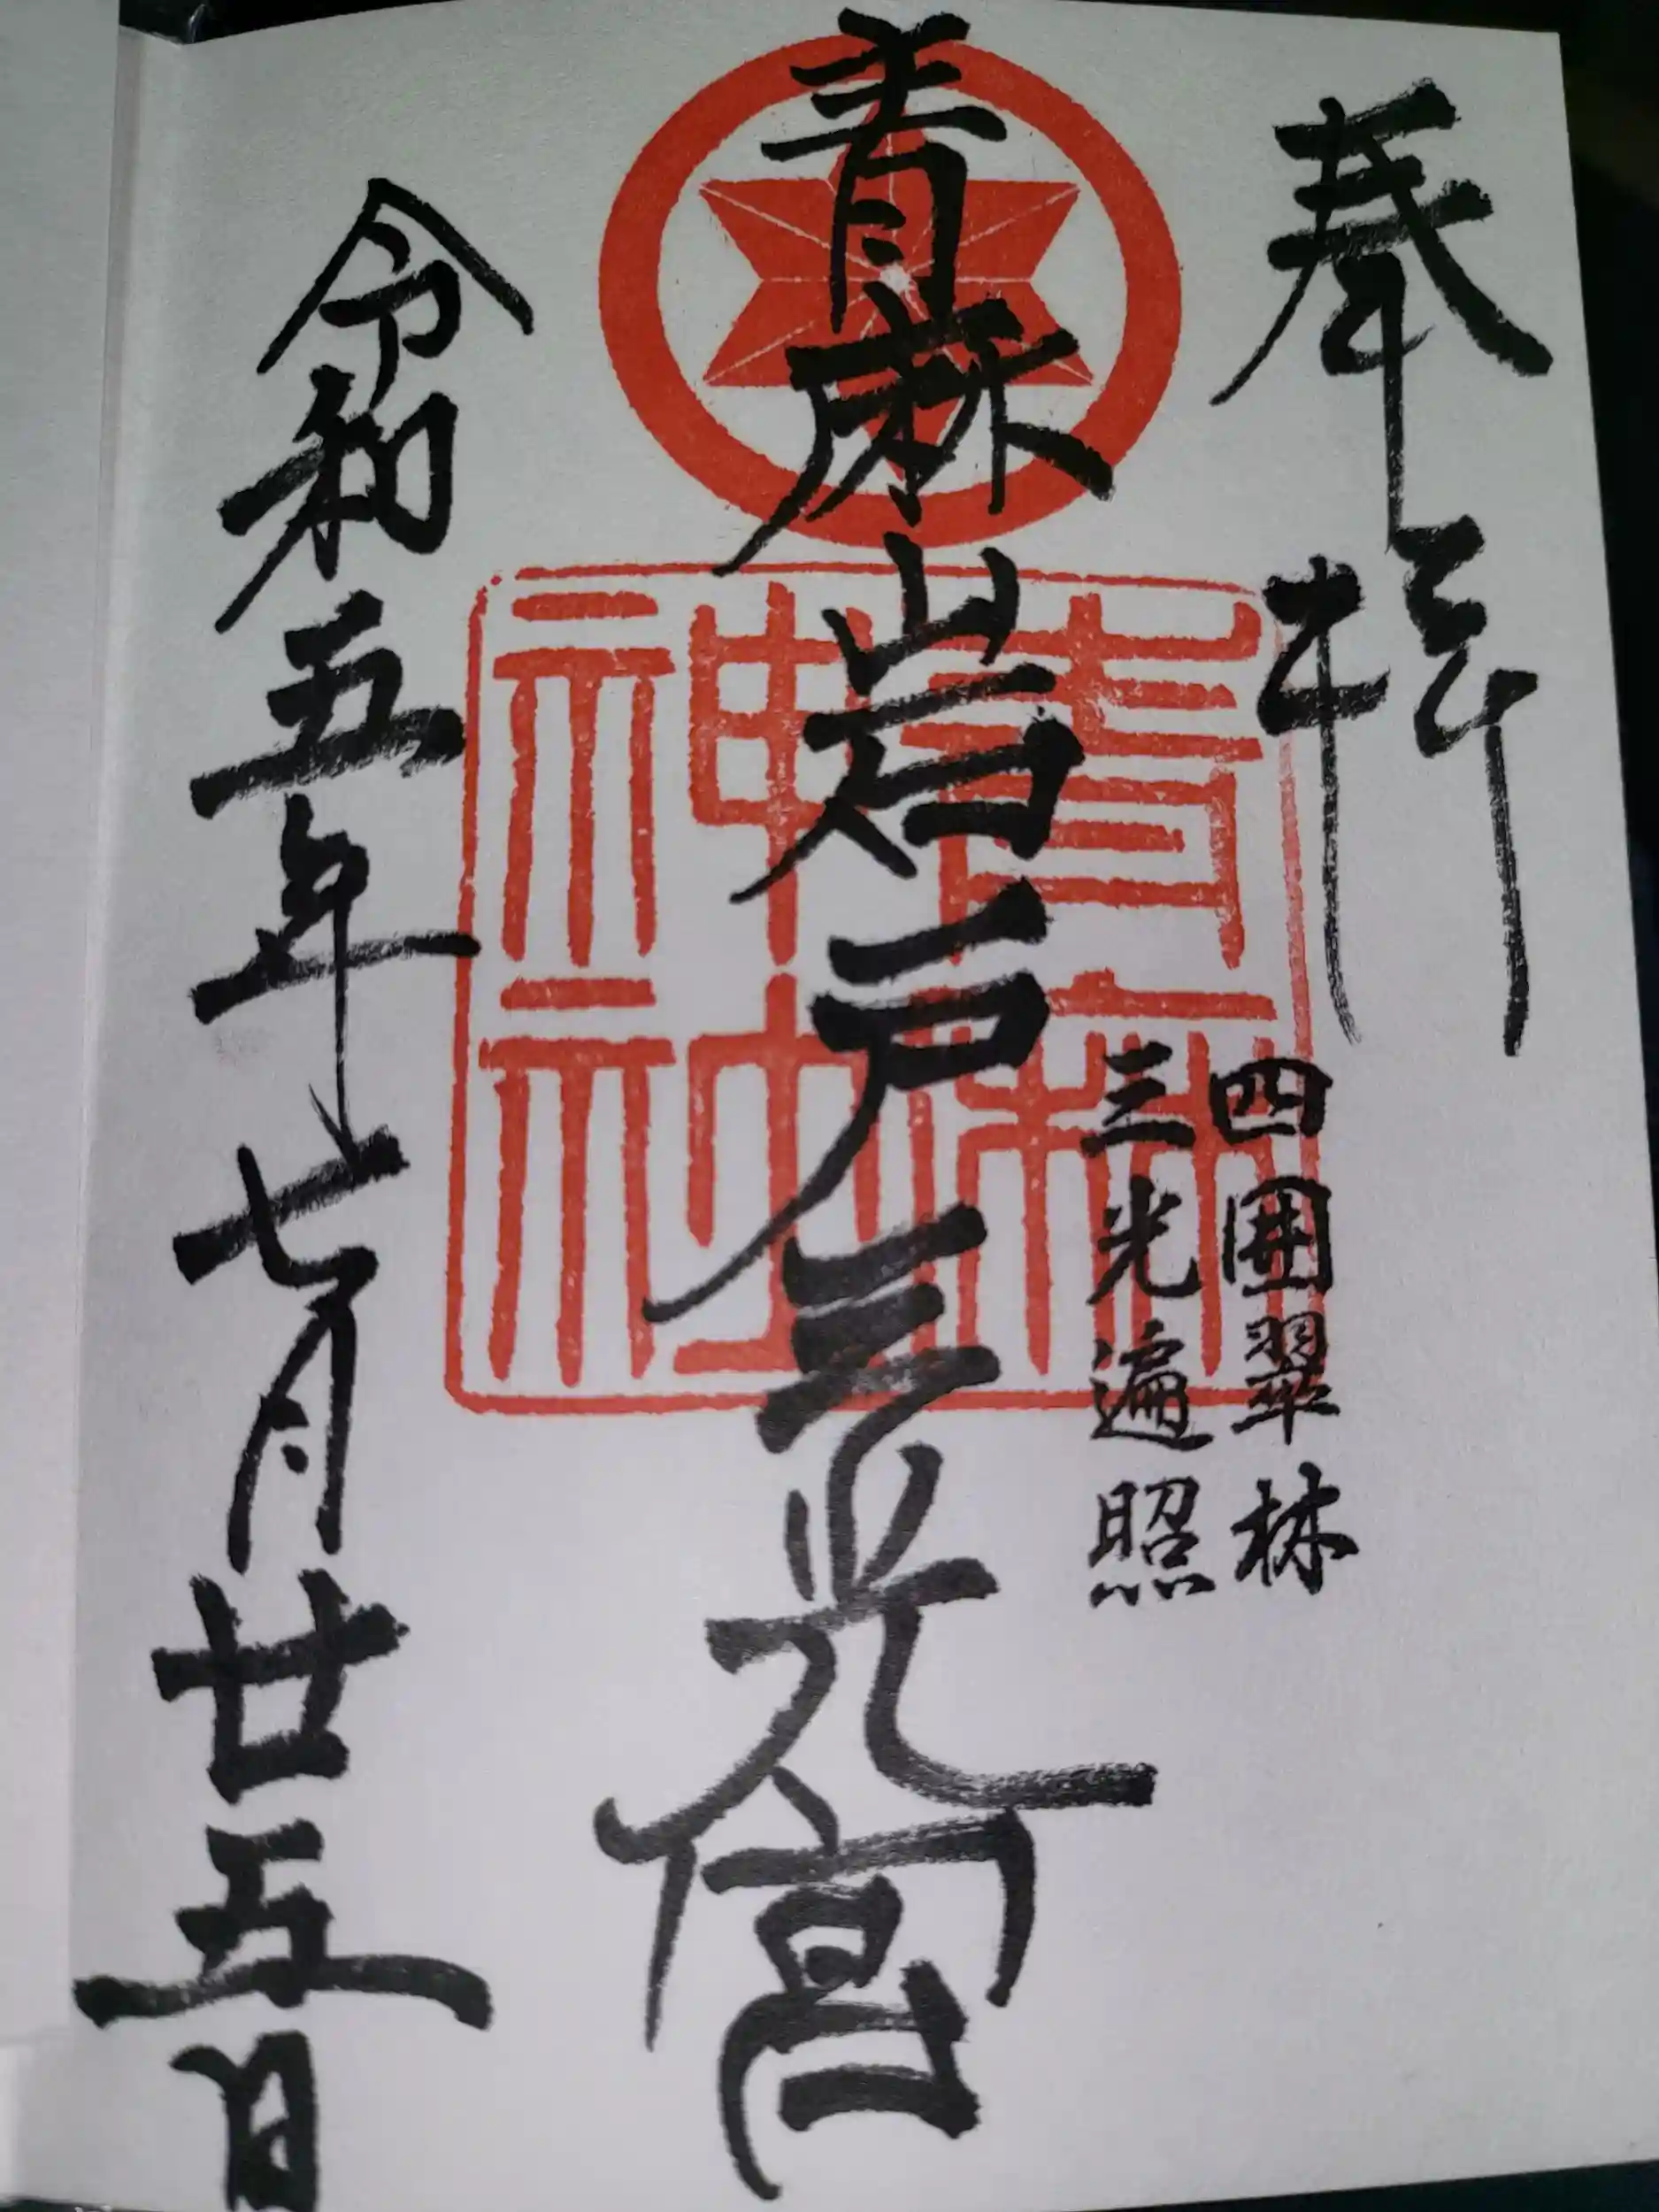 奉拝
四囲翠林
三光遍照
青麻岩戸三光宮
青麻神社
令和五年七月廿五日